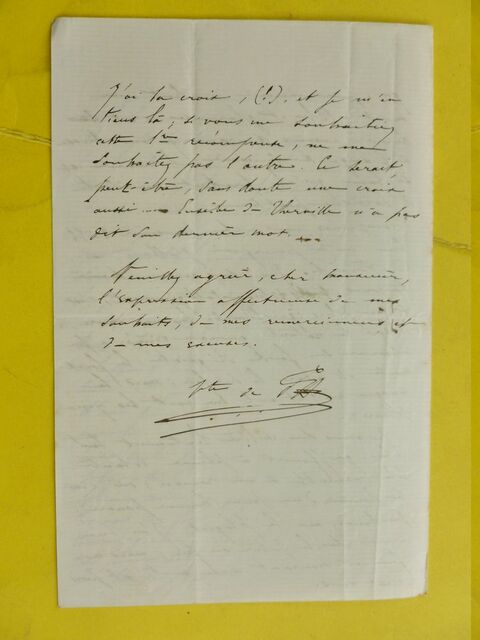 J'ai la croix, (!), et je m'en
tiens là ; si vous me souhaitiez
cette 1re récompense, ne me
souhaitez pas l'autre. Ce serait
peut-être, sans doute une croix
aussi — Eusèbe de
dit son dernier mot.
Veuillez agréer, cher monsieur,
l'expression affectueuse de mes
souhaits, de mes remerciements et
de mes excuses.
Vte de